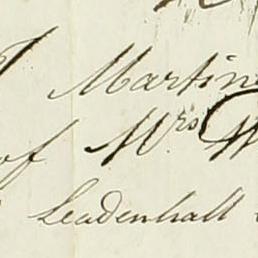 Martin
of Mrs
Leadenhall